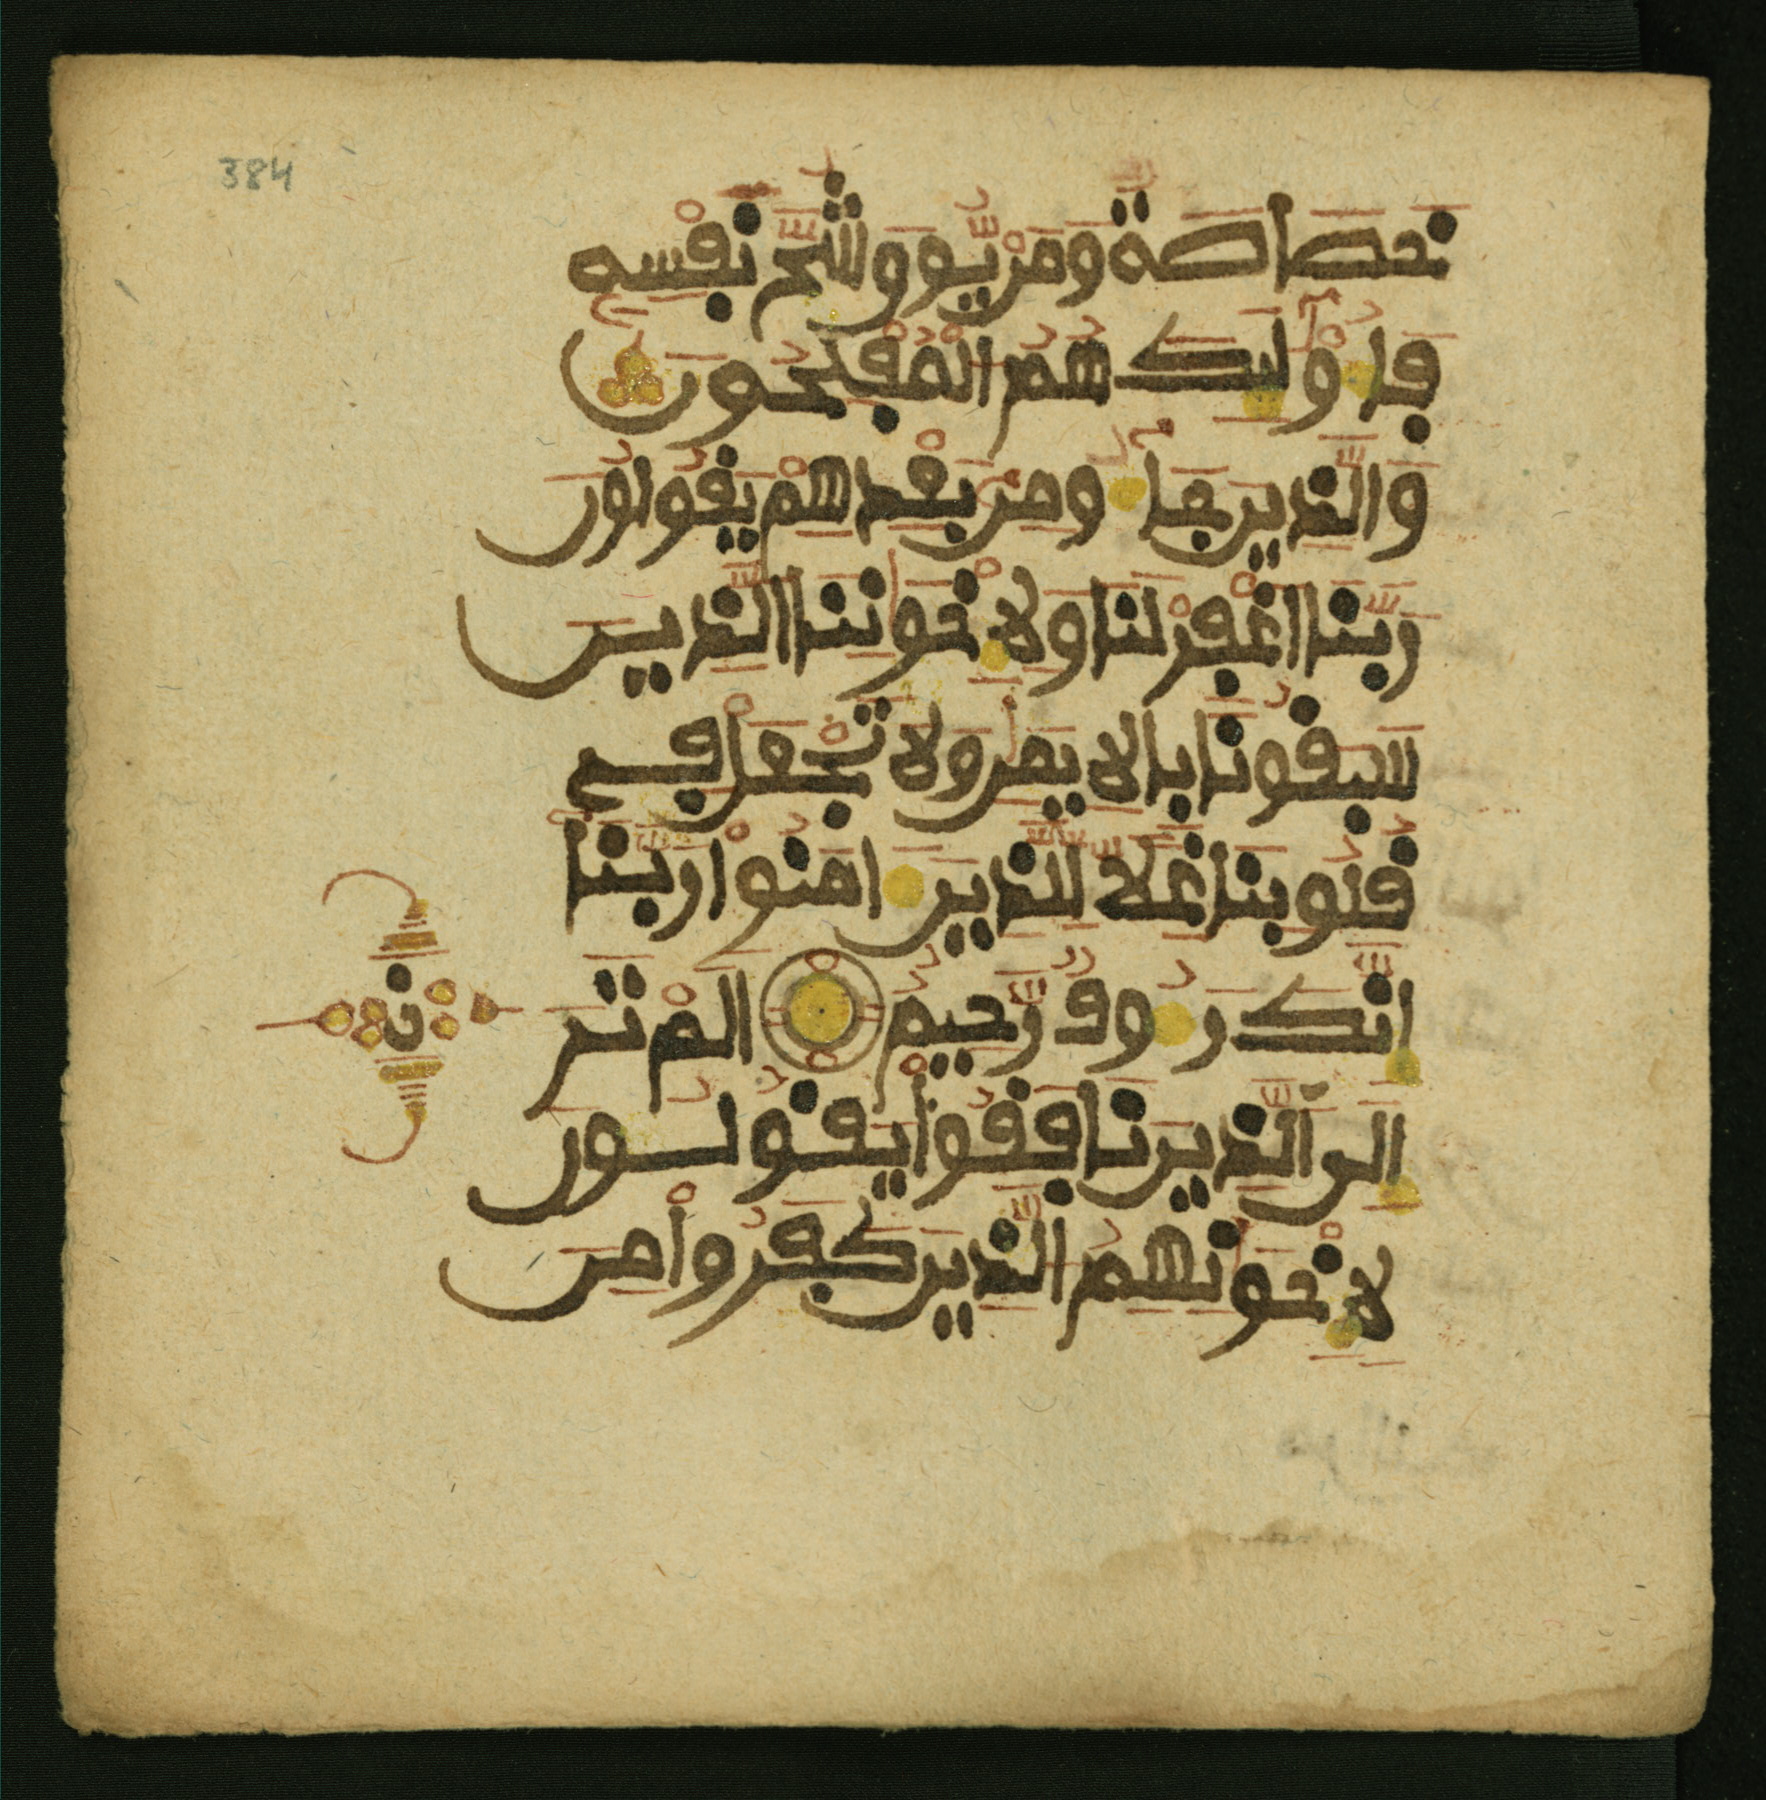 384
خصاصة ومن يوق شح نفسه
فاوليك هم المفلحون
والذين جاو من بعدهم يقولون
ربنا اغفر لنا ولاخوننا الذين
سبقونا بالايمن ولا تجعل في
قلوبنا غلا للذين امنوا ربنا
انك روف رحيم الم تر
الى الذين نافقوا يقولون
لاخونهم الذين كفروا من